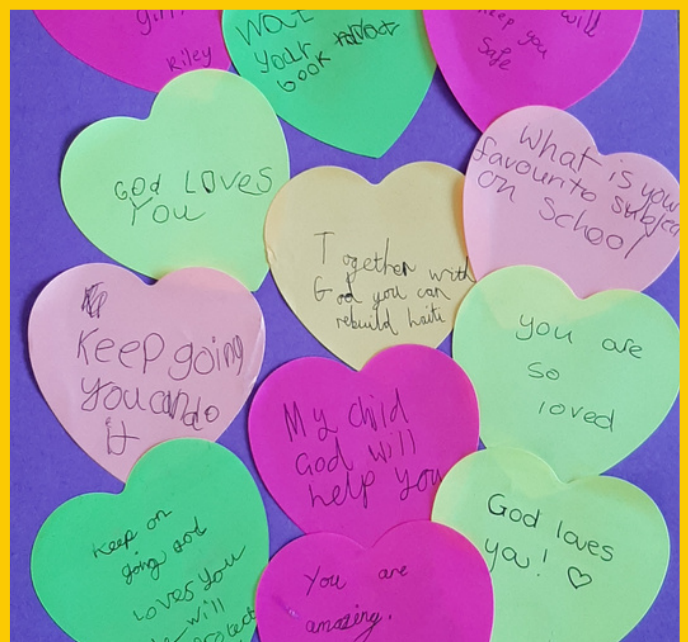 girl!
Riley
Wat
your
book
will
keep you
Safe
God Loves
You
What is your
favourite subject
on School
Together with
God you can
rebuild haiti
Keep going
you can do
it
you are
so
loved
My child
God will
help you
God loves
you! ♡
Keep on
going god
Loves You
will
protect
You are
amazing.